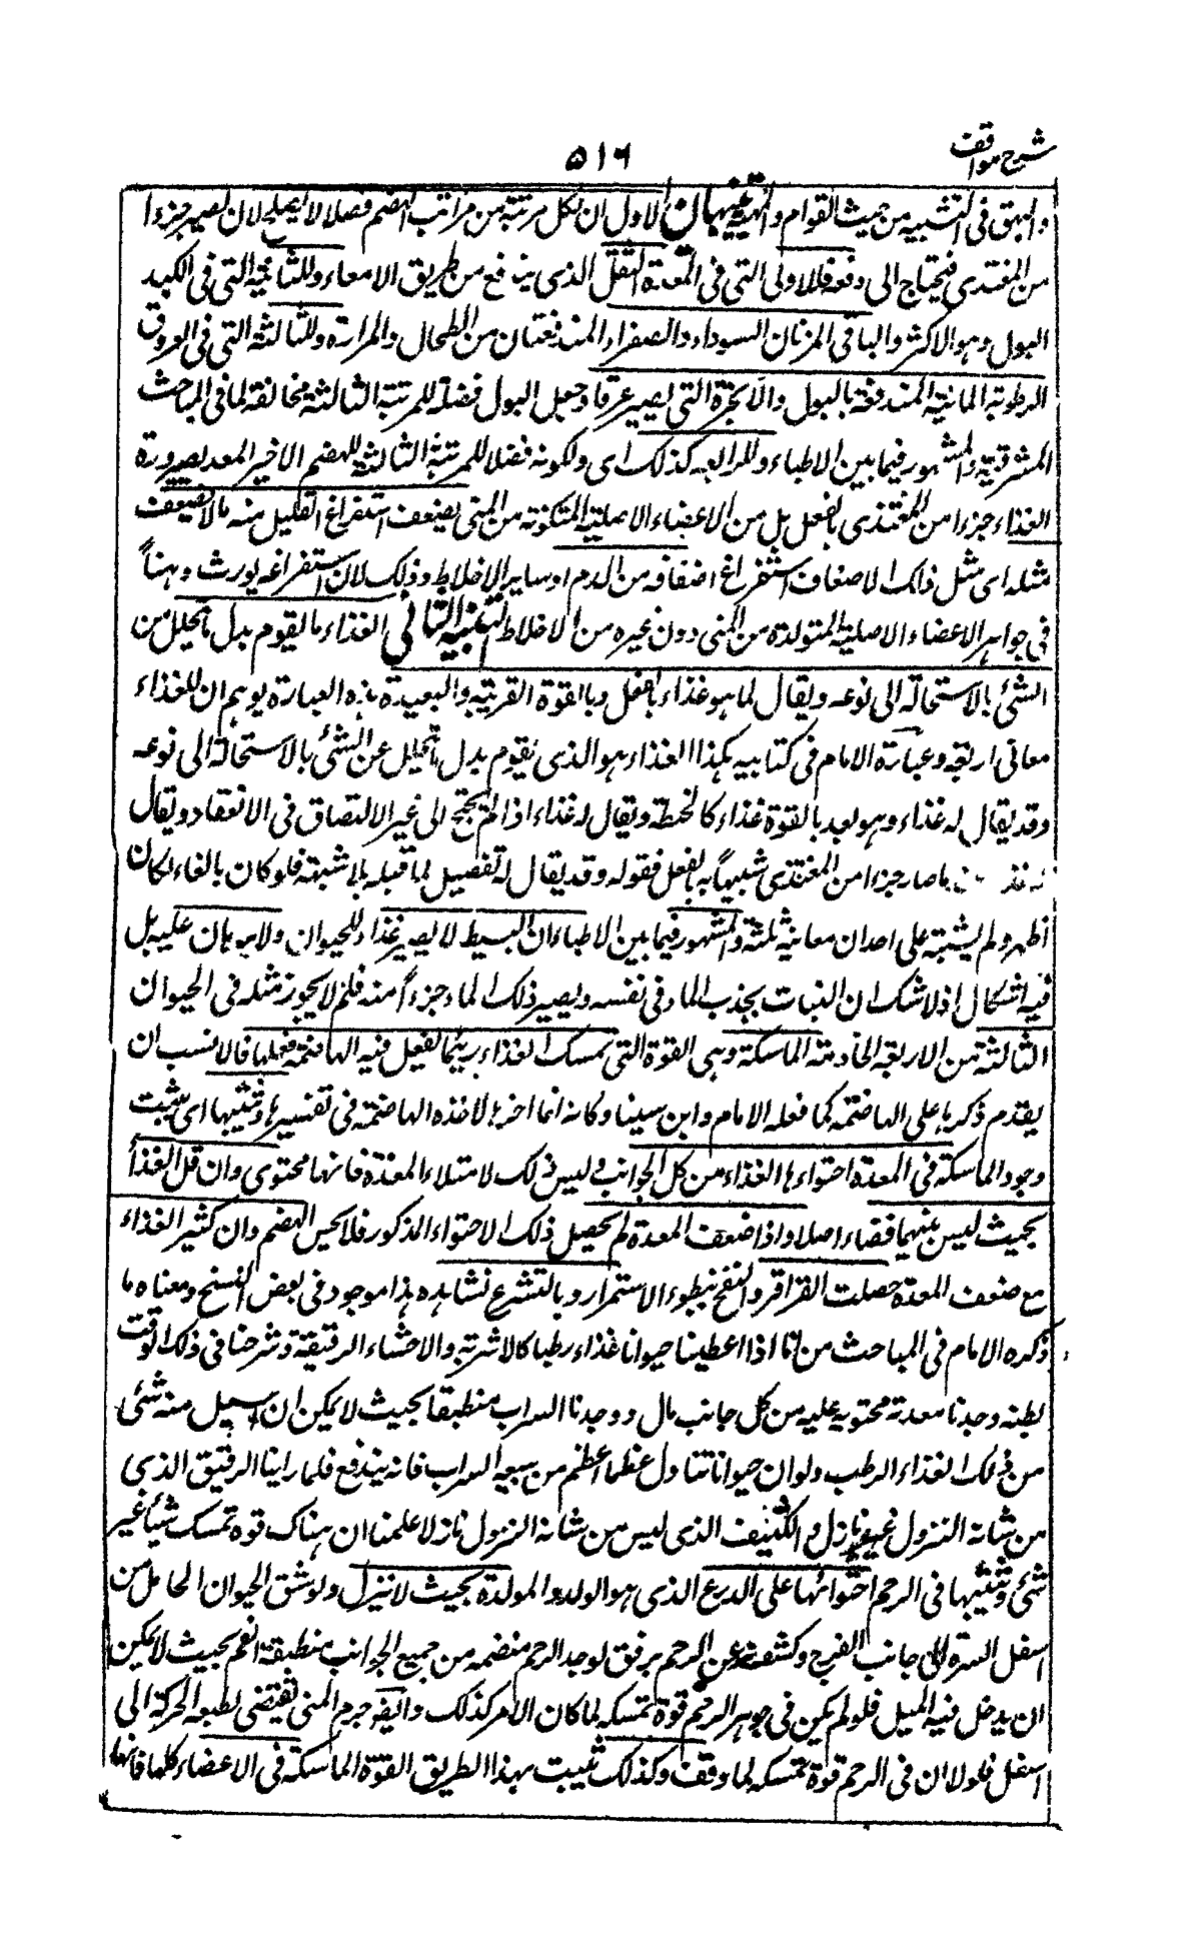 شرح مواقف
٥١٦
والبهق فى التشبيه من حيث القوام والهيئة تنبيهان الاول ان لكل مرتبة من مراتب الهضم فضلا لا يصلح لان يصير جزءا
من المغتذى فيحتاج الى دفعه فللاولى التى فى المعدة الثقل الذى يندفع من طريق الامعاء وللثانية التى فى الكبد
البول وهو الاكثر والباقى المرتان السوداء والصفراء المندفعتان من الطحال والمرارة وللثالثة التى فى العروق
الرطوبة المائية المندفعة بالبول والابخرة التى تصير عرقا وجعل البول فضلة للمرتبة الثالثة مخالفة لما فى المباحث
المشرقية والمشهور فيما بين الاطباء وللرابعة كذلك اى ولكونه فضلا للمرتبة الثالثة للهضم الاخير المعد لصيرورة
الغذاء جزءا من المغتذى بالفعل بل من الاعضاء الاصلية المتكونة من المنى يضعف استفراغ القليل منه ما لا يضعف
مثله اى مثل ذلك الاضعاف استفراغ اضعافه من الدم او ساير الاخلاط وذلك لان استفراغه يورث وهناً
فى جواهر الاعضاء الاصلية المتولدة من المنى دون غيره من الاخلاط التنبيه الثانى الغذاء ما يقوم بدل ما يتحلل من
الشئ بالاستحالة الى نوعه ويقال لما هو غذاء بالفعل وبالقوة القريبة والبعيدة هذه العبارة يوهم ان للغذاء
معانى اربعة وعبارة الامام فى كتابيه هكذا الغذاء هو الذى يقوم بدل ما يتحلل عن الشئ بالاستحالة الى نوعه
وقد يقال له غذاء وهو بعد بالقوة غذاء كالحنطة ويقال له غذاء اذا لم يحتج الى غير الالتصاق فى الانعقاد ويقال
له ما صار جزءا من المغتذى شبيهاً به بالفعل فقوله وقد يقال له تفصيل لما قبله بلا شبهة فلو كان بالفاء لكان
اظهر ولم يشتبه على احد ان معانيه ثلثة والمشهور فيما بين الاطباء ان البسيط لا يصير غذاء للحيوان ولا برهان عليه بل
فيه اشكال اذ لا شك ان النبات يجذب الماء فى نفسه ويصير ذلك الماء جزءاً منه فلم لا يجوز مثله فى الحيوان
الثالثة من الاربعة الخادمة الماسكة وهى القوة التى تمسك الغذاء ريثما تفعل فيه الهاضمة فعلها فالانسب ان
يقدم ذكرها على الهاضمة كما فعله الامام وابن سينا وكانه انما اخرها لاخذه الهاضمة فى تفسيرها وتثبيتها اى يثبت
وجود الماسكة فى المعدة احتواءها الغذاء من كل الجوانب وليس ذلك لامتلاء المعدة فانها محتوى وان قل الغذاء
بحيث ليس بينهما فضاء اصلا واذا ضعف المعدة لم يحصل ذلك الاحتواء المذكور فلا يحس الهضم وان كثير الغذاء
مع ضعف المعدة حصلت القراقر والنفخ وبطوء الاستمراء وبالتشرع نشاهده هذا موجود فى بعض النسخ ومعناه ما
ذكره الامام فى المباحث من انا اذا اعطينا حيوانا غذاء رطبا كالاشربة والاحشاء الرقيقة وشرحنا فى ذلك الوقت
بطنه وجدنا معدته محتوية عليه من كل جانب ووجدنا البواب منطبقا بحيث لا يمكن ان يسيل منه شئ
من ذلك الغذاء الرطب ولو ان حيوانا تناول عظما اعظم من سعة البواب فانه يندفع فلما راينا الرقيق الذى
من شانه النزول غير نازل والكثيف الذى ليس من شانه النزول نازلا علمنا ان هناك قوة تمسك شيئا غير
شئ وتثبيتها فى الرحم احتوائها على الزرع الذى هو الولد والمولدة بحيث لا ينزل ولو شق الحيوان الحامل من
اسفل السرة الى جانب الفرج وكشفت عن الرحم برفق لوجد الرحم منضمة من جميع الجوانب منطبقة الفم بحيث لا يمكن
ان يدخل فيه الميل فلو لم يكن فى جوهر الرحم قوة تمسكه لما كان الامر كذلك وايضا جرم المنى يقتضى لطبعه الحركة الى
اسفل فلولا ان فى الرحم قوة تمسكه لما وقف وكذلك تثبت بهذا الطريق القوة الماسكة فى الاعضاء كلها فانها